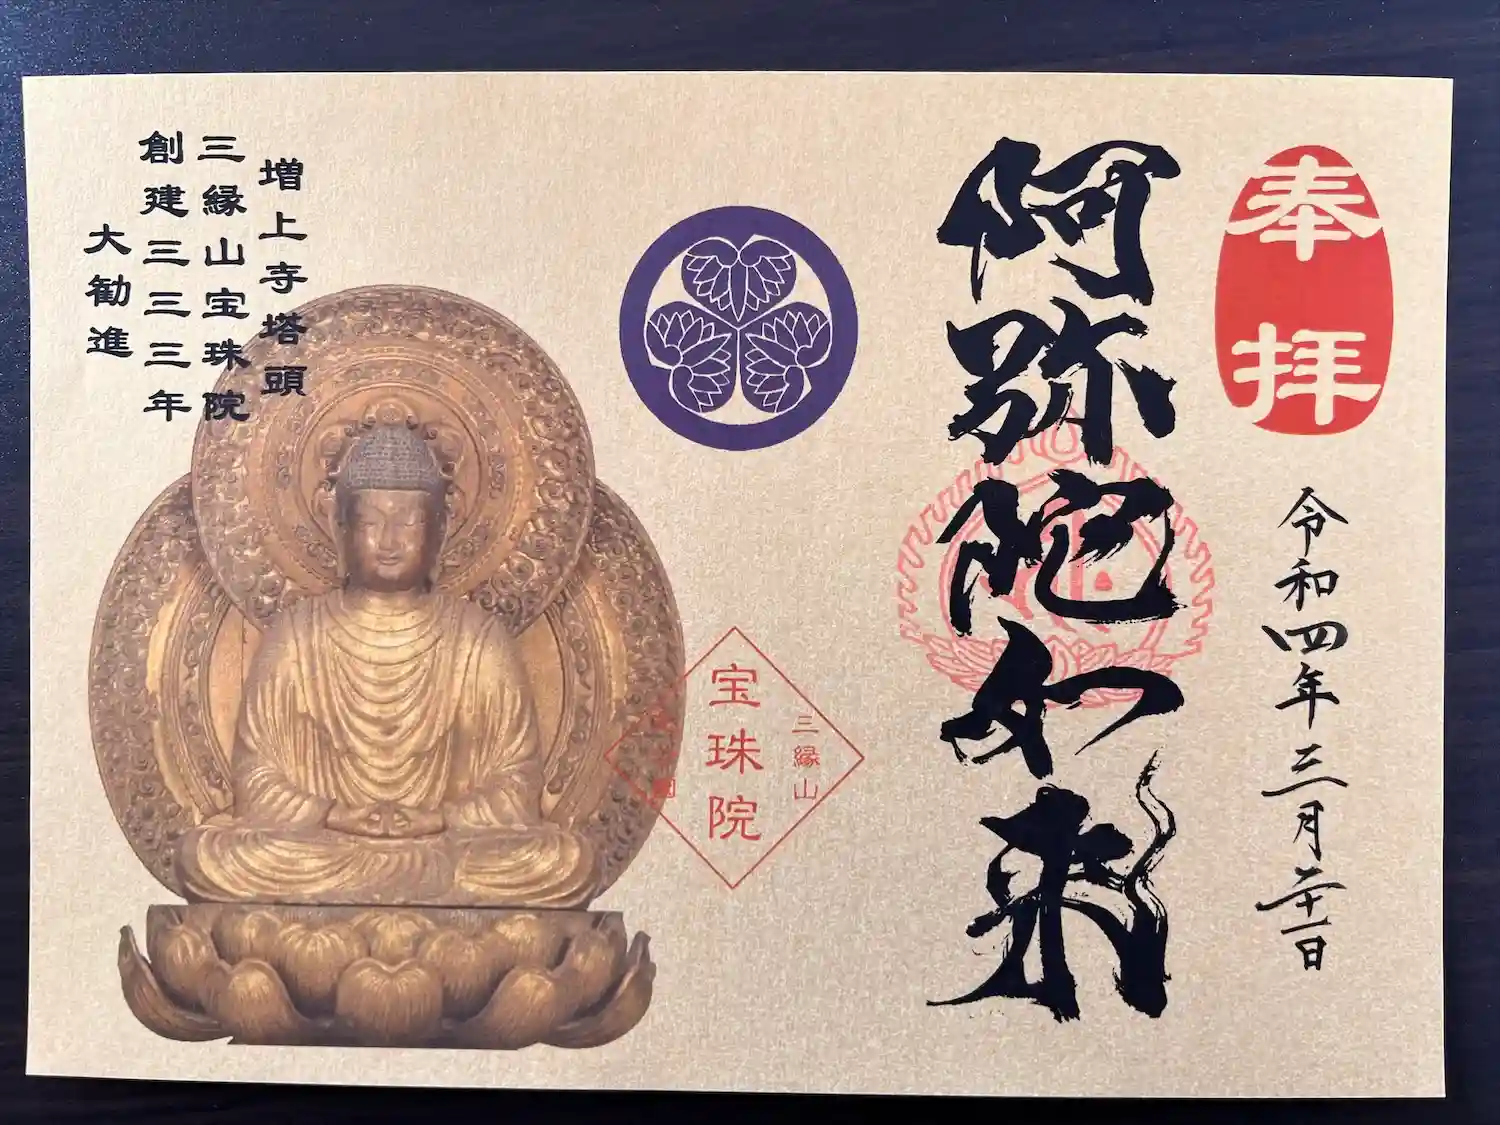 奉拝
令和四年三月二十一日
阿弥陀如来
三縁山
宝珠院
増上寺塔頭
三縁山宝珠院
創建三三三年
大勧進